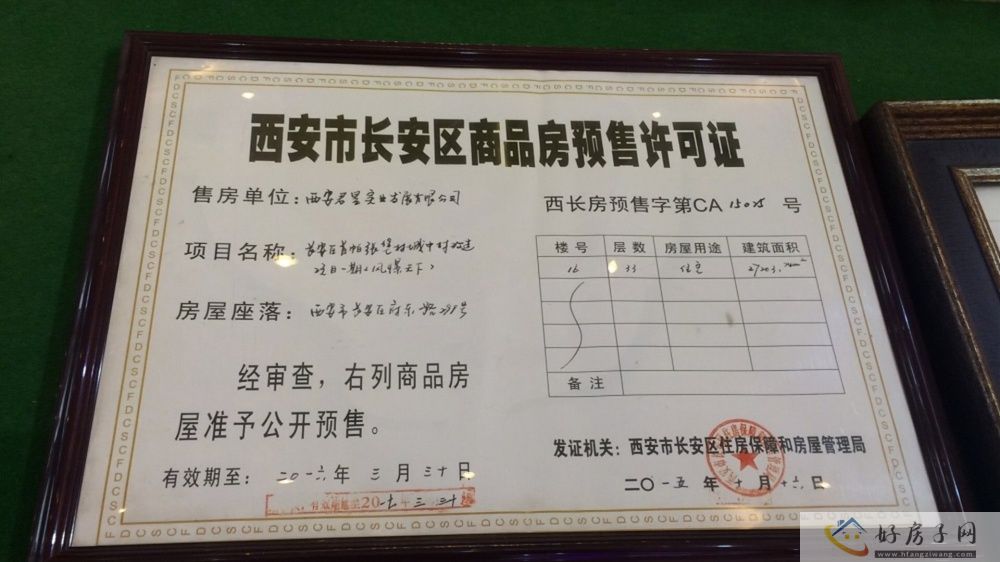 西安市长安区商品房预售许可证
售房单位：西安君星实业发展有限公司
西长房预售字第CA 15025 号
项目名称：长安区首帕张堡村城中村改造
项目一期（风景天下）
房屋座落：西安市长安区府东路
楼号 层数 房屋用途 建筑面积
16 33 住宅
备注
经审查，右列商品房
屋准予公开预售。
有效期至：二〇一六年 三 月 三十 日
发证机关：西安市长安区住房保障和房屋管理局
二〇一五 年 十 月 十六 日
好房子网
www.hfangziwang.com